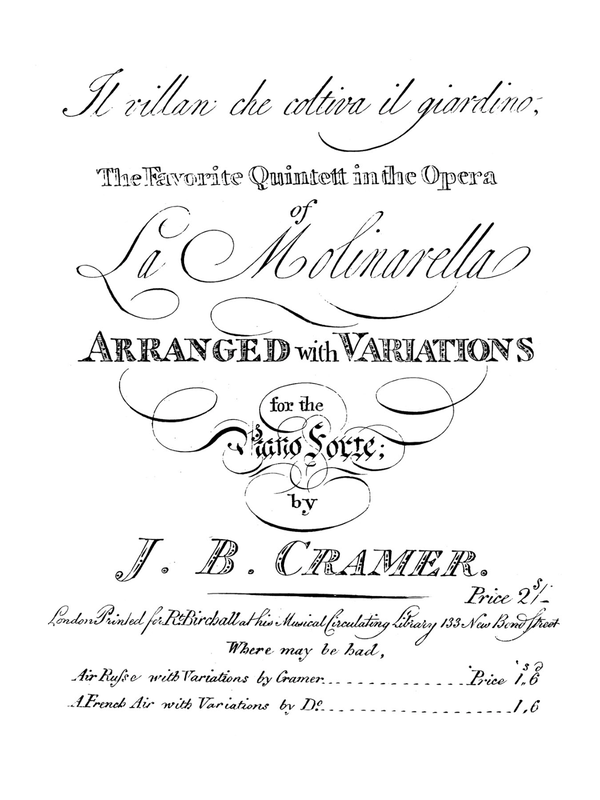 Il villan che coltiva il giardino;
The Favorite Quintett in the Opera
of
La Molinarella
ARRANGED with VARIATIONS
for the
Piano Forte;
by
J. B. CRAMER.
Price 2s/-
London Printed for Rt. Birchall at his Musical Circulating Library 133 New Bond Street
Where may be had,
Air Ruſse with Variations by Cramer. Price 1s,,6d
A French Air with Variations by Do. 1,,6